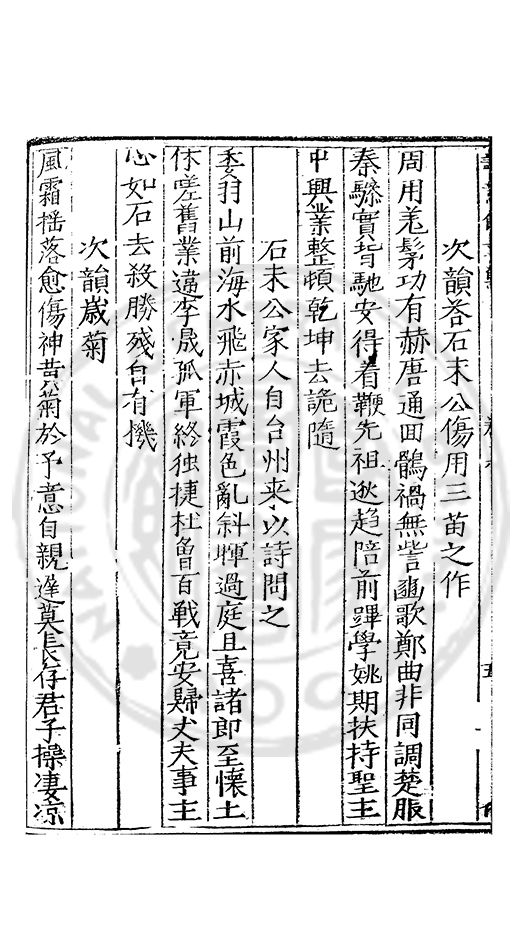 次韻荅石末公傷用三苗之作
周用羗髳功有赫唐通回鶻禍無訾豳歌鄭曲非同調楚服
秦驂實皆馳安得着鞭先祖逖趋陪前蹕學姚期扶持聖主
中興業整頓乾坤去詭隨
石末公家人自台州来以詩問之
委羽山前海水飛赤城霞色亂斜暉過庭且喜諸郎至懐土
休嗟舊業違李晟孤軍終独捷杜魯百戰竟安歸丈夫事主
心如石去殺勝殘自有機
次韻嵗菊
風霜揺落愈傷神黄菊於予意自親遅莫長存君子操凄凉